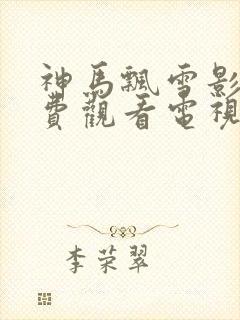 神馬飄雪影
費觀看電視
李荣翠